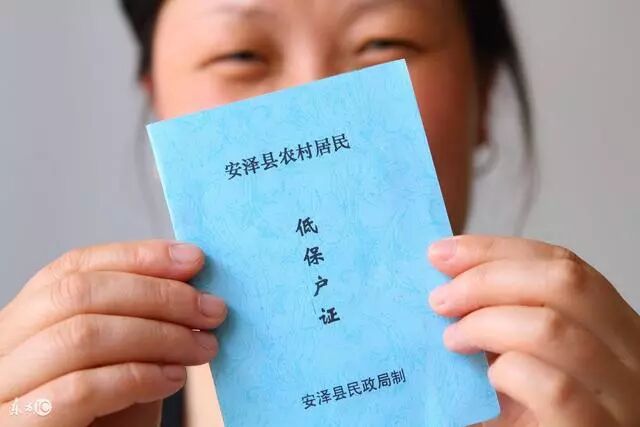 安泽县农村居民
低保户证
安泽县民政局制
东方IC